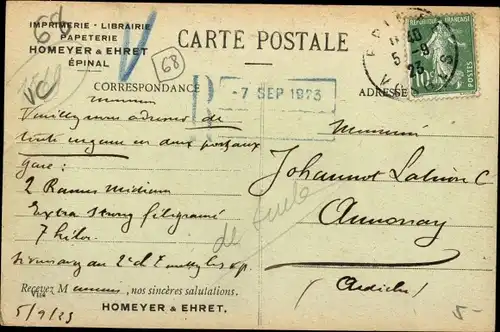 68
IMPRIMERIE - LIBRAIRIE
PAPETERIE
HOMEYER & EHRET
ÉPINAL
VC
CARTE POSTALE
68
RÉPUBLIQUE FRANÇAISE
10
5-9
23
VOSGES
CORRESPONDANCE
ADRESSE
R
-7 SEP 1923
Monsieur
Veuillez nous adresser de
toute urgence en deux postaux
gare :
2 Rames
Extra Strong filigrané
7 kilos
Monsieur
Johannot
Annonay
(Ardèche)
Recevez M, nos sincères salutations.
HOMEYER & EHRET.
5/9/23
5-